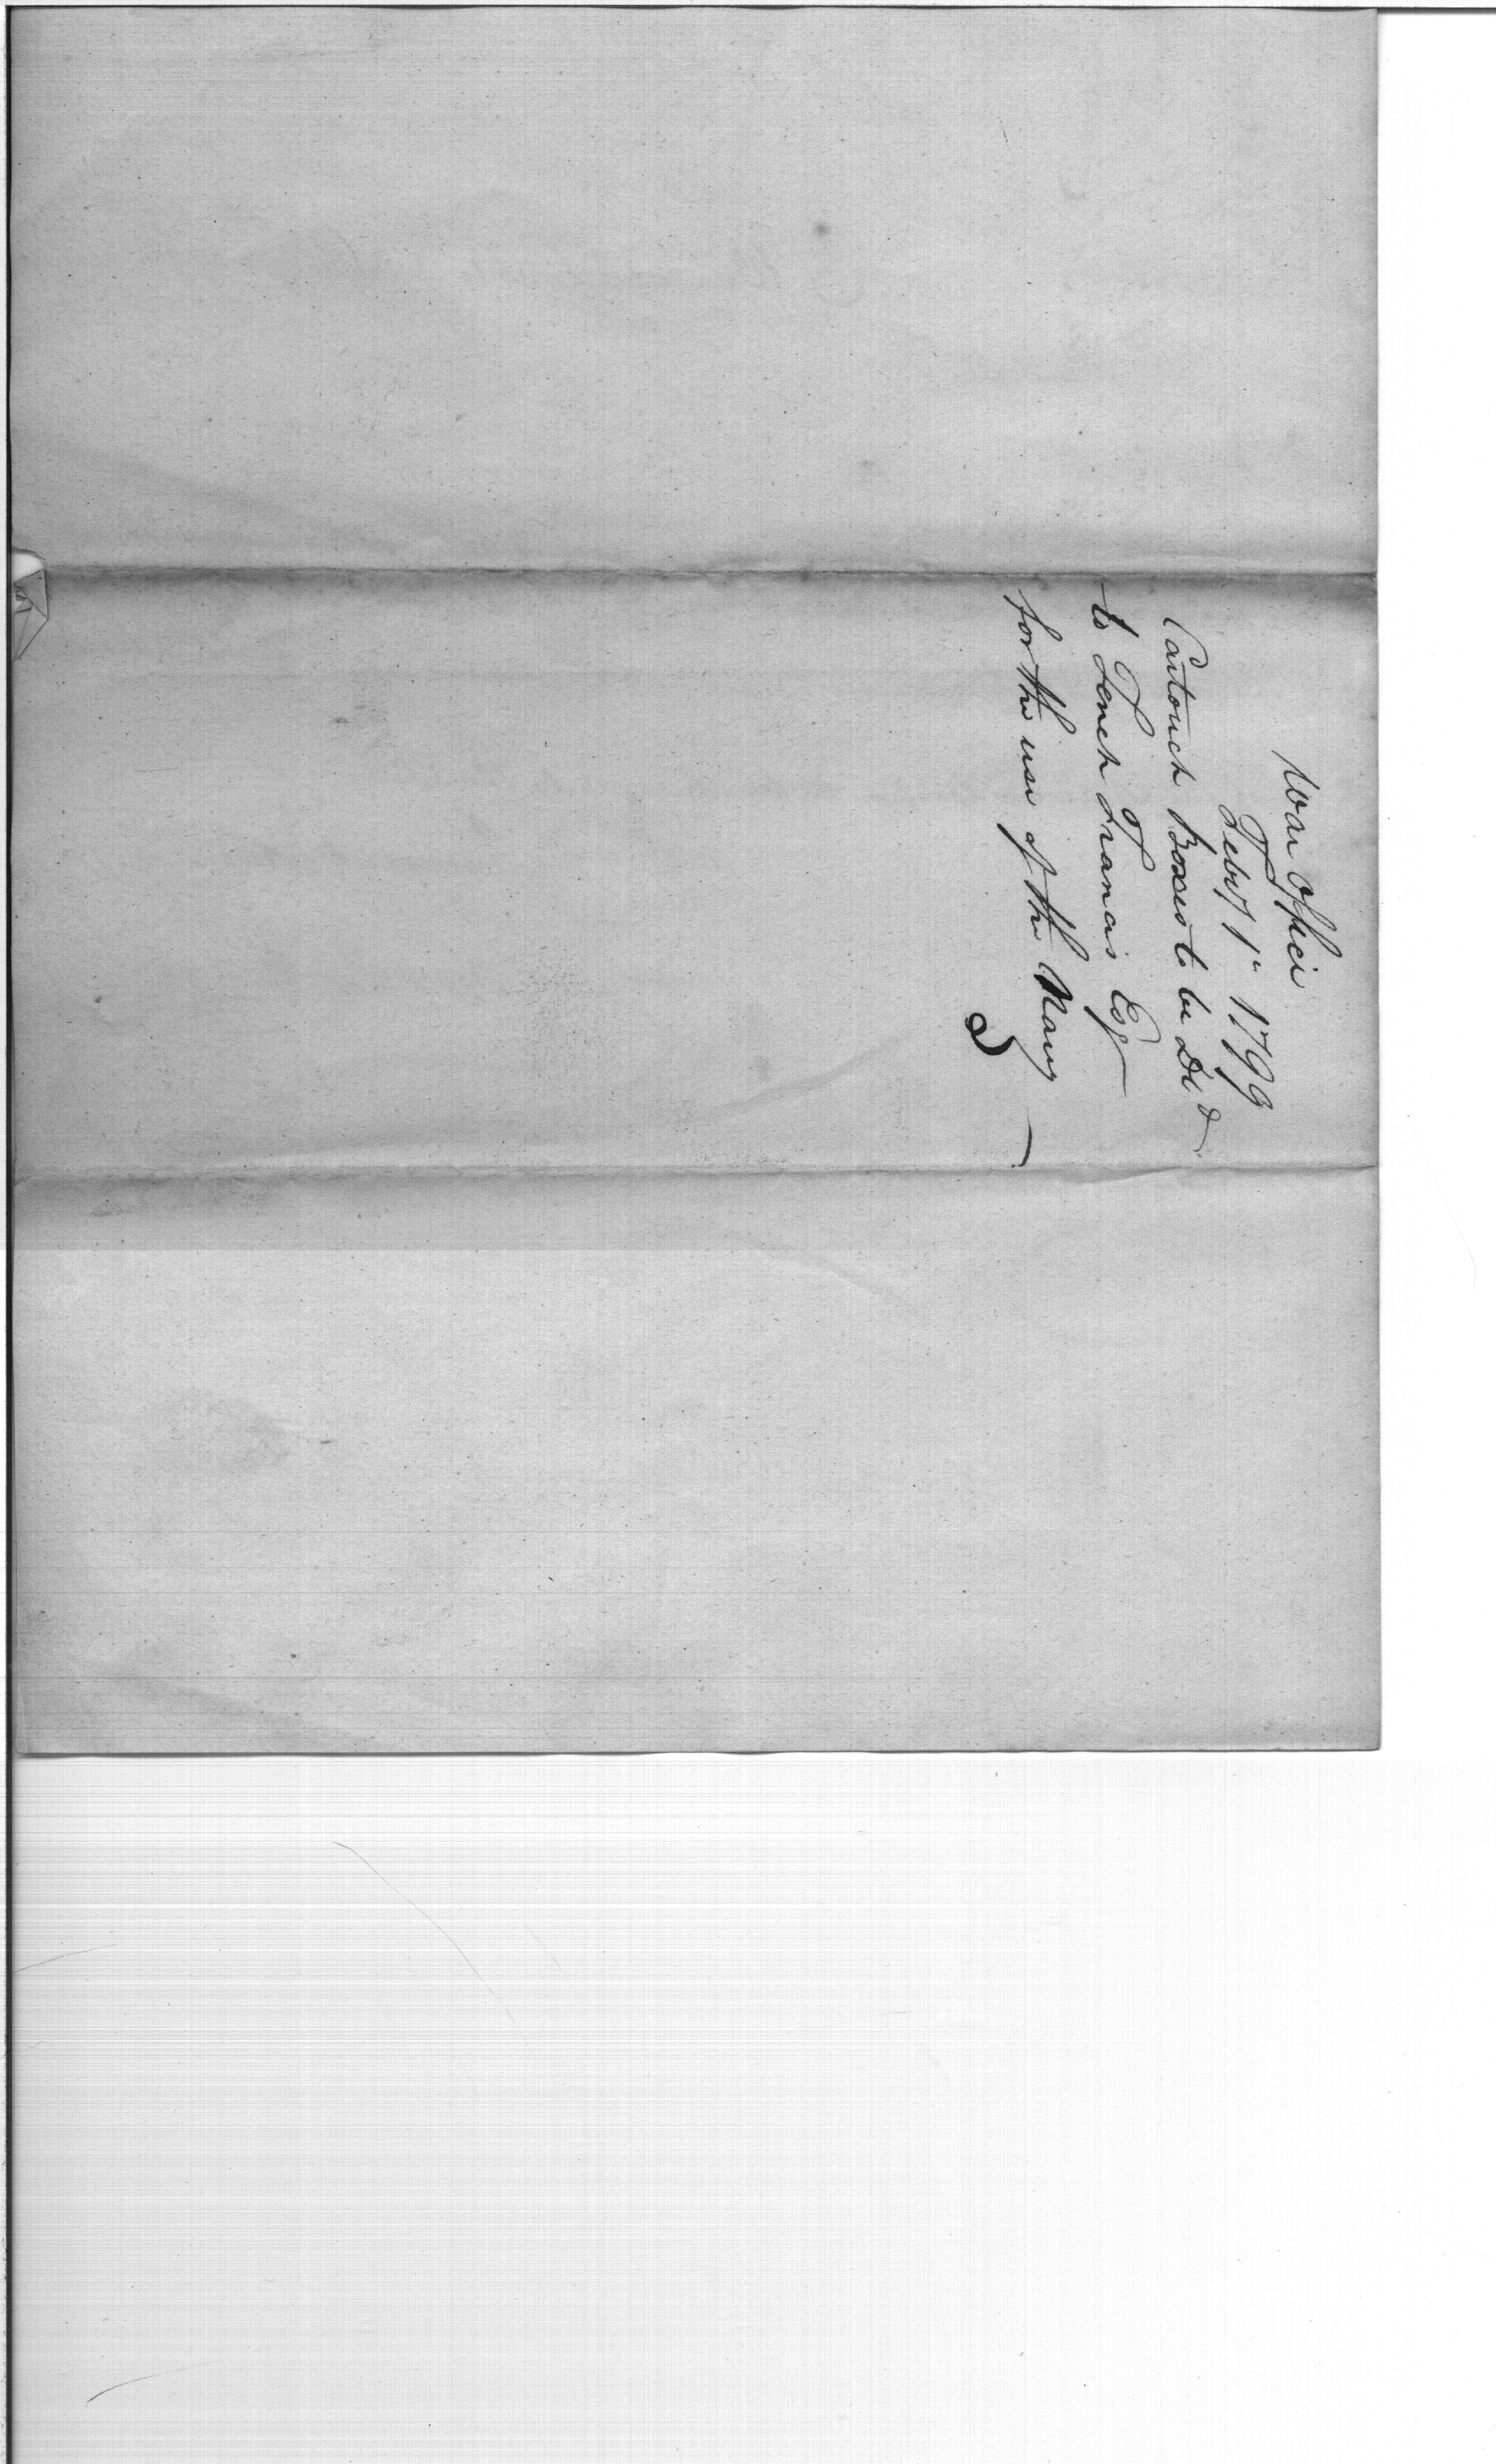 War Office
Feby 1st 1799
Cartouch Boxes to be Deld
to Tench Francis Esqr
for the use of the Navy